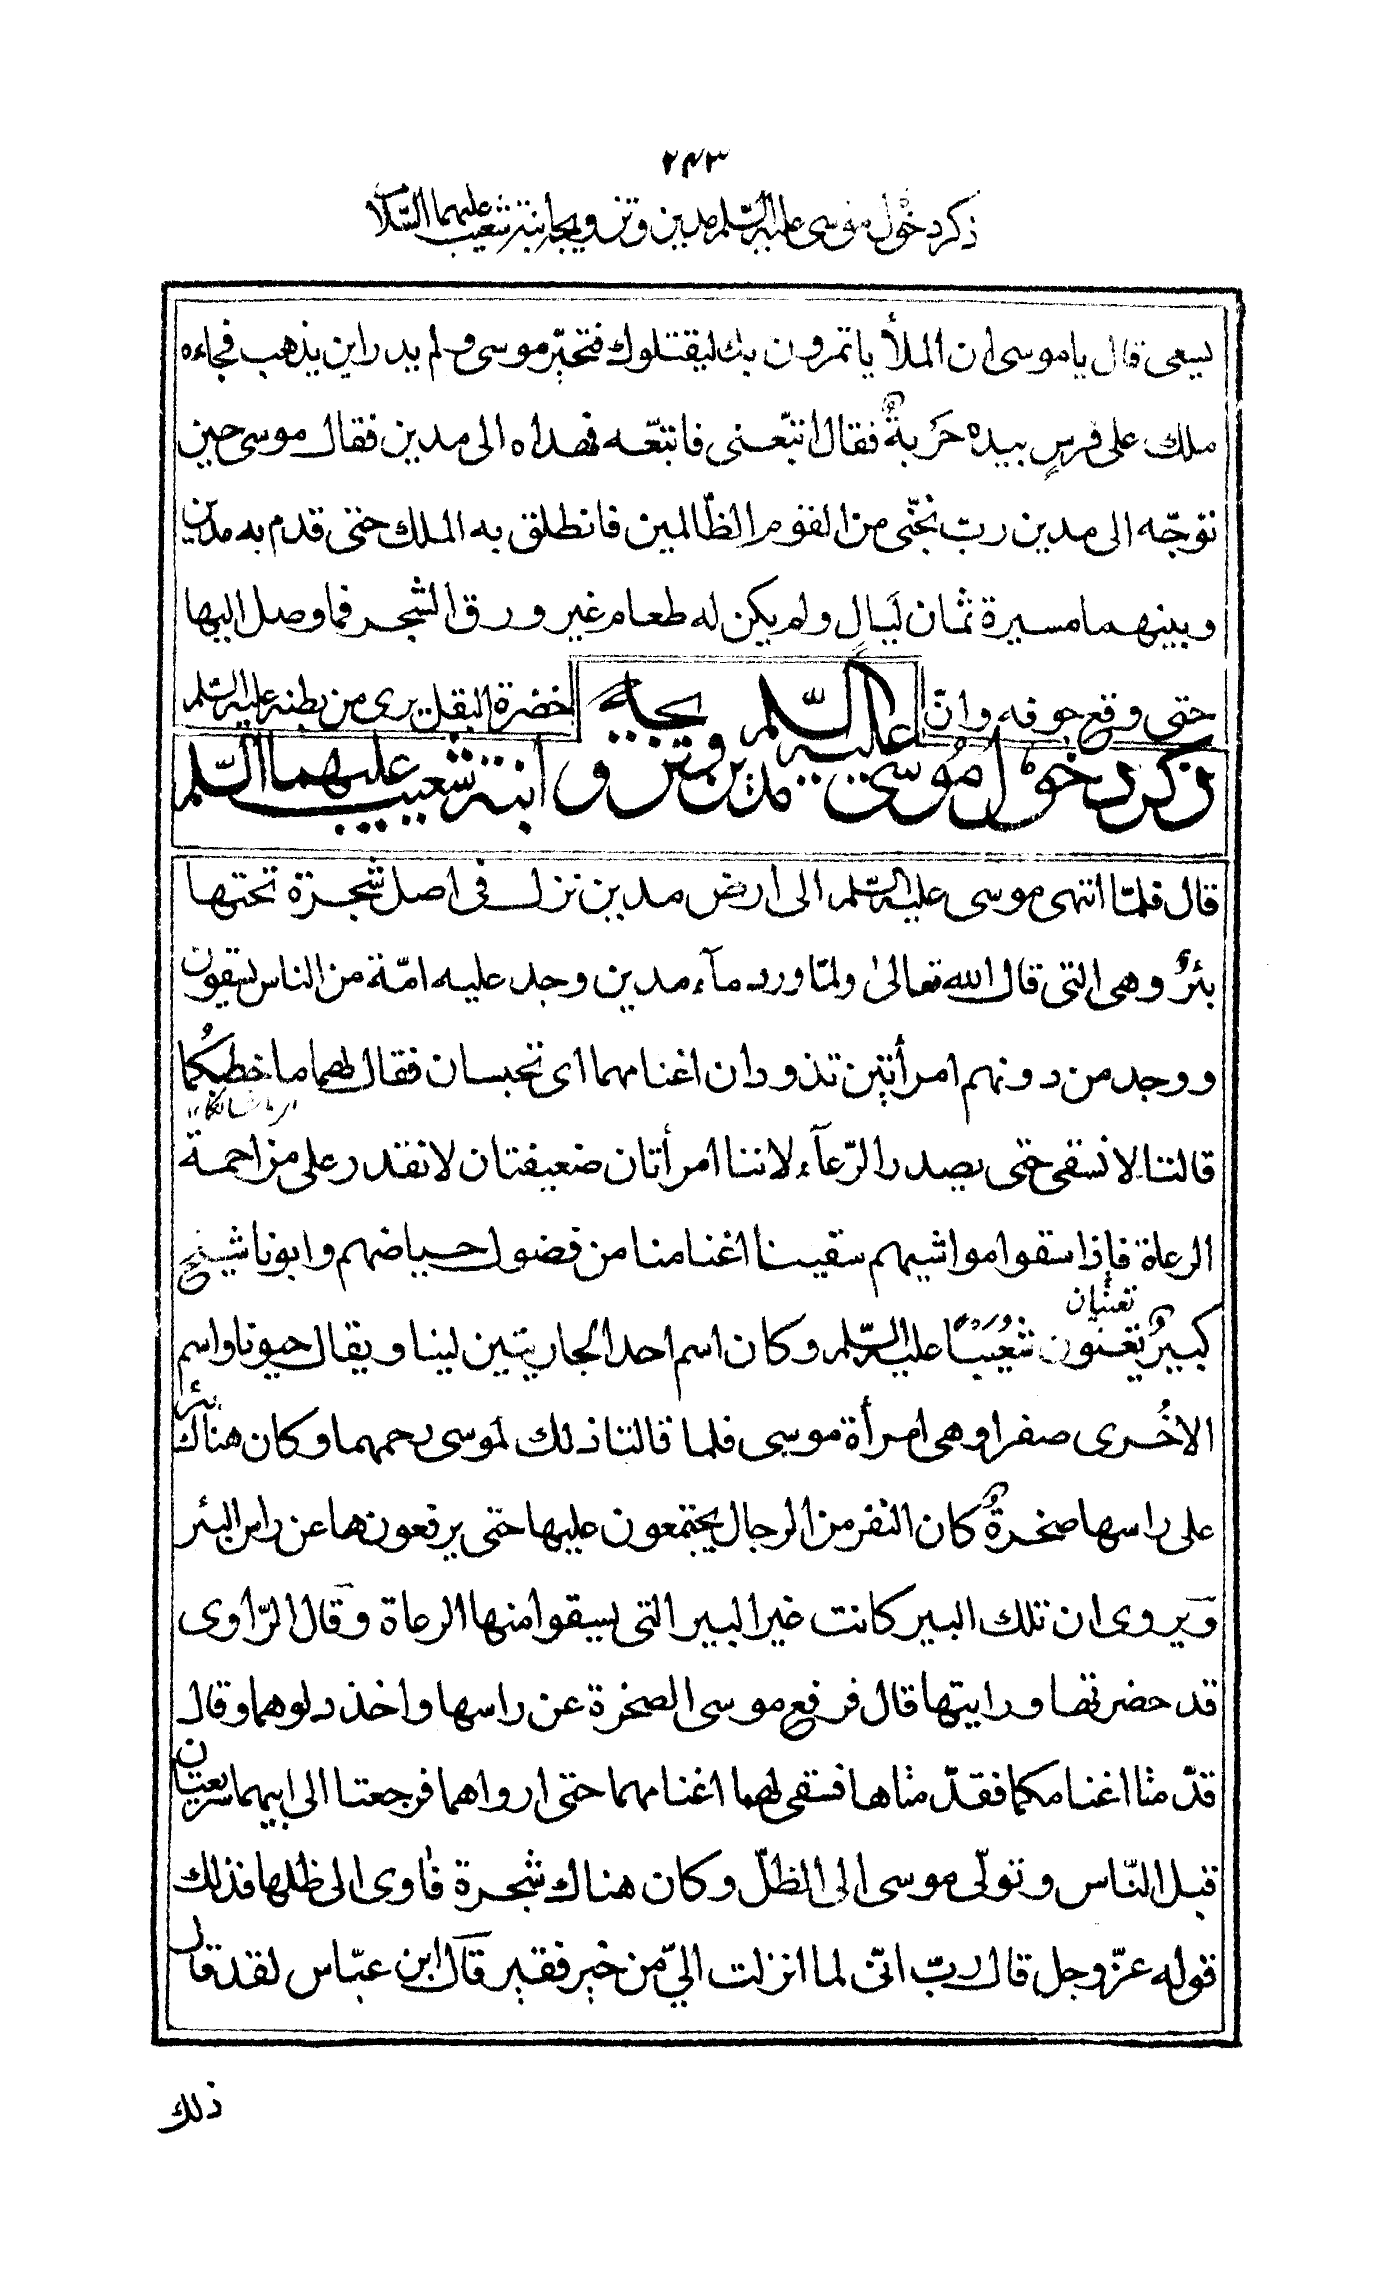 ٢٤٣
ذكر دخول موسى عليه السّلم مدين وتزويجه ابنة شعيب عليهما السّلام
يسعى قال يا موسى ان الملأ ياتمرون بك ليقتلوك فتحيّر موسى ولم يدر اين يذهب فجاءه
ملك على فرسٍ بيده حَرْبةٌ فقال اتبّعنى فاتبّعه فهداه الى مدين فقال موسى حين
توجّه الى مدين ربّ نجّنى من القوم الظّالمين فانطلق به الملك حتى قدم به مدين
وبينهما مسيرة ثمان لَيَالٍ ولم يكن له طعام غير ورق الشجر فما وصل اليها
حتى وقع جوفه وانّ خضرة البقل يرى من بطنه عليه السّلم
ذكر دخول موسى عليه السّلم مدين وتزويجه ابنة شعيب عليهما السّلم
قال فلمّا انتهى موسى عليه السّلم الى ارض مدين نزل فى اصل شجرة تحتها
بئرٌ وهى التى قال الله تعالىٰ ولمّا ورد مآء مدين وجد عليه امّة من الناس يسقون
ووجد من دونهم امرأتين تذودان اغنامهما اى تحبسان فقال لهما ما خطبكُما
اى ما شانكما ١٢
قالتا لا نسقى حتى يصدر الرّعآء لاننا امرأتان ضعيفتان لا نقدر على مزاحمة
الرعاة فإذا سقوا مواشيهم سقينا اغنامنا من فضول حياضهم وابونا شيخ
تعنيان
كبيرٌ يَعْنُون شُعَيْبًا عليه السّلم وكان اسم احد الجاريتين لينا ويقال حيونا واسم
الاخُرى صفرا وهى امرأة موسى فلما قالتا ذلك لموسى رحمهما وكان هناك بئر
على راسها صخرةٌ كان النفر من الرجال يجتمعون عليها حتى يرفعونها عن راس البئر
ويروى ان تلك البير كانت غير البير التى يسقوا منها الرعاة وقال الرّاوى
قد حضرتها ورايتها قال فرفع موسى الصخرة عن راسها واخذ دلوهما وقال
قدّمتا اغنامكما فقدّمتاها فسقى لهما اغنامهما حتى ارواهما فرجعتا الى ابيهما سريعتان
قبل النّاس وتولّى موسى الى الظلّ وكان هناك شجرة فاوى الى ظلها فذلك
قوله عزّوجل قال ربّ انّى لما انزلت اليّ من خير فقير قال ابن عبّاس لقد قال
ذلك